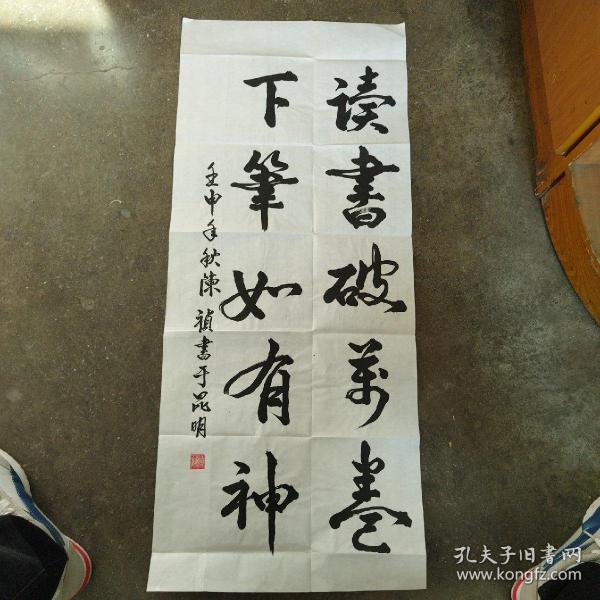 读书破万卷
下筆如有神
壬申年秋陳禎書于昆明
孔夫子旧書网
www.kongfz.com